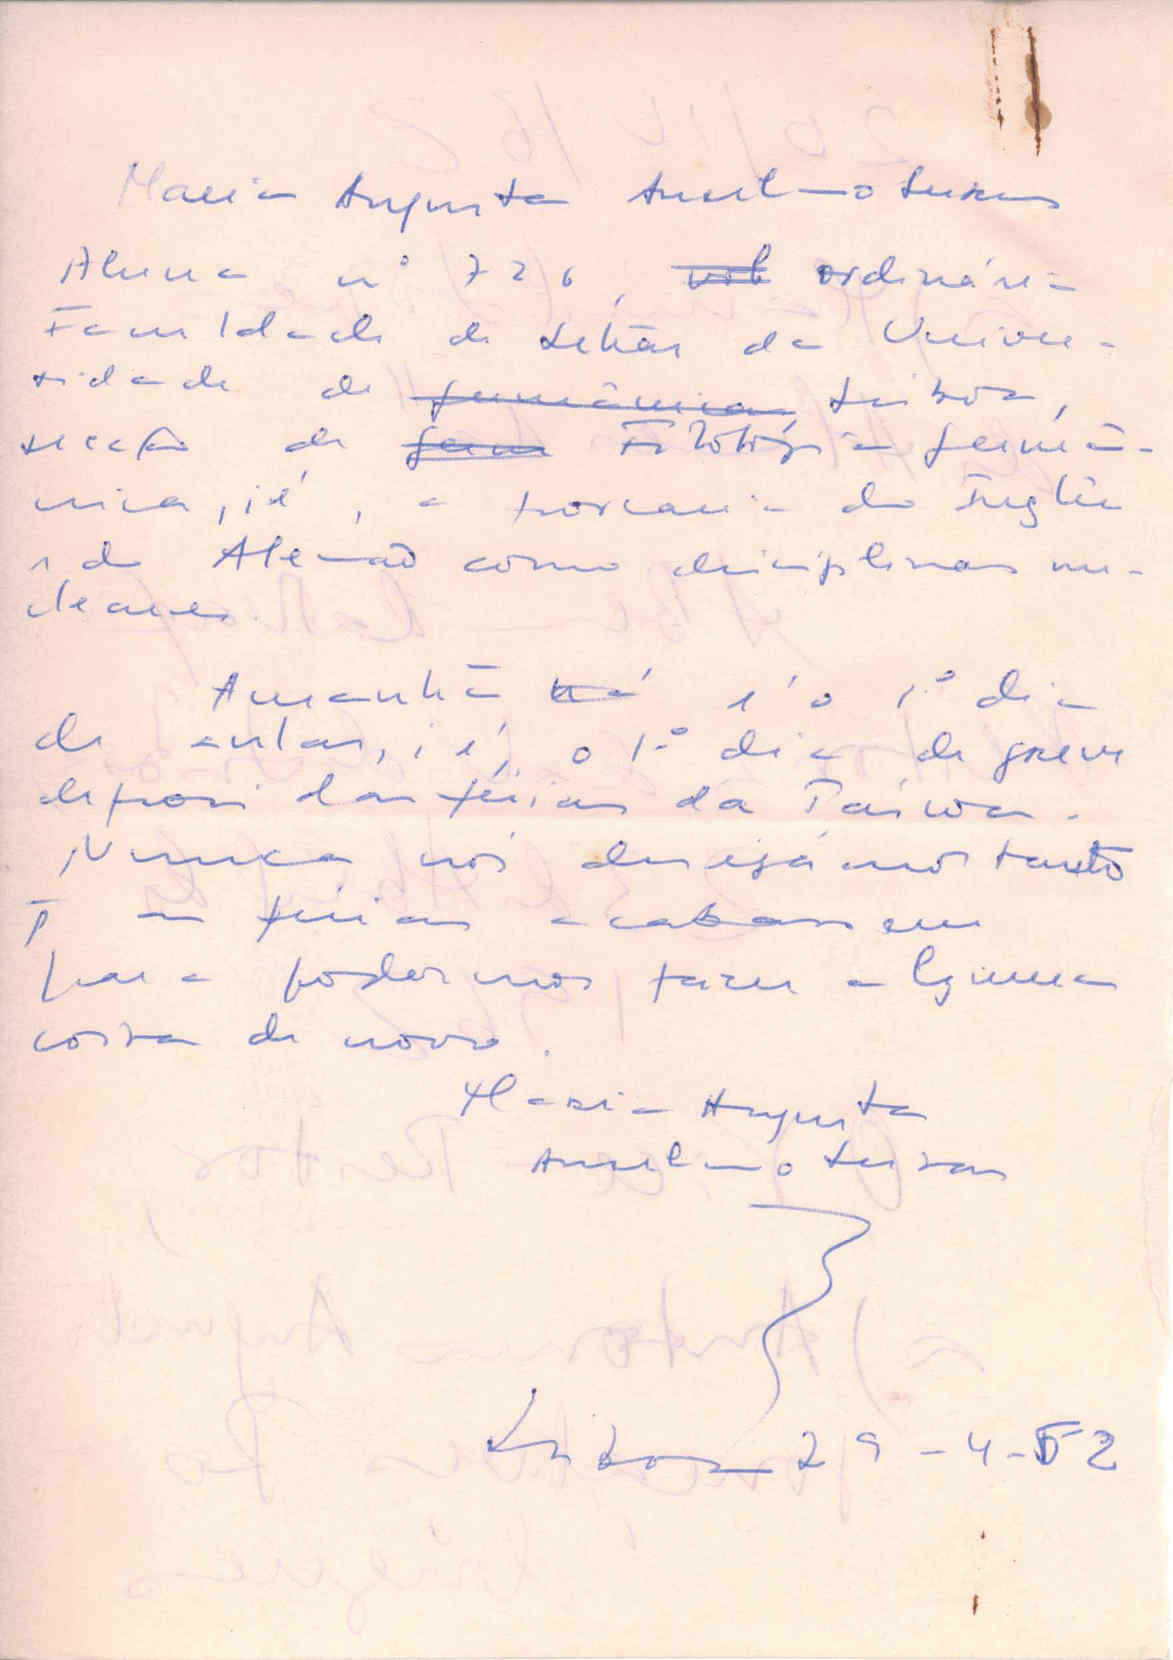 Maria Augusta Anselmo Seixas
Aluna nº 726, ordinária
Faculdade de Letras da Univer-
sidade de germânicas Lisboa,
secção de germ Filologia germâ-
nica, i é, a porcaria do Inglês
e do Alemão como disciplinas nu-
cleares.
Amanhã há é o 1.º dia
de aulas, i é, o 1.º dia de greve
depois das férias da Páscoa.
Nunca nós desejámos tanto
q as férias acabassem
para podermos fazer alguma
coisa de novo.
Maria Augusta
Anselmo Seixas
Lisboa 29-4-62